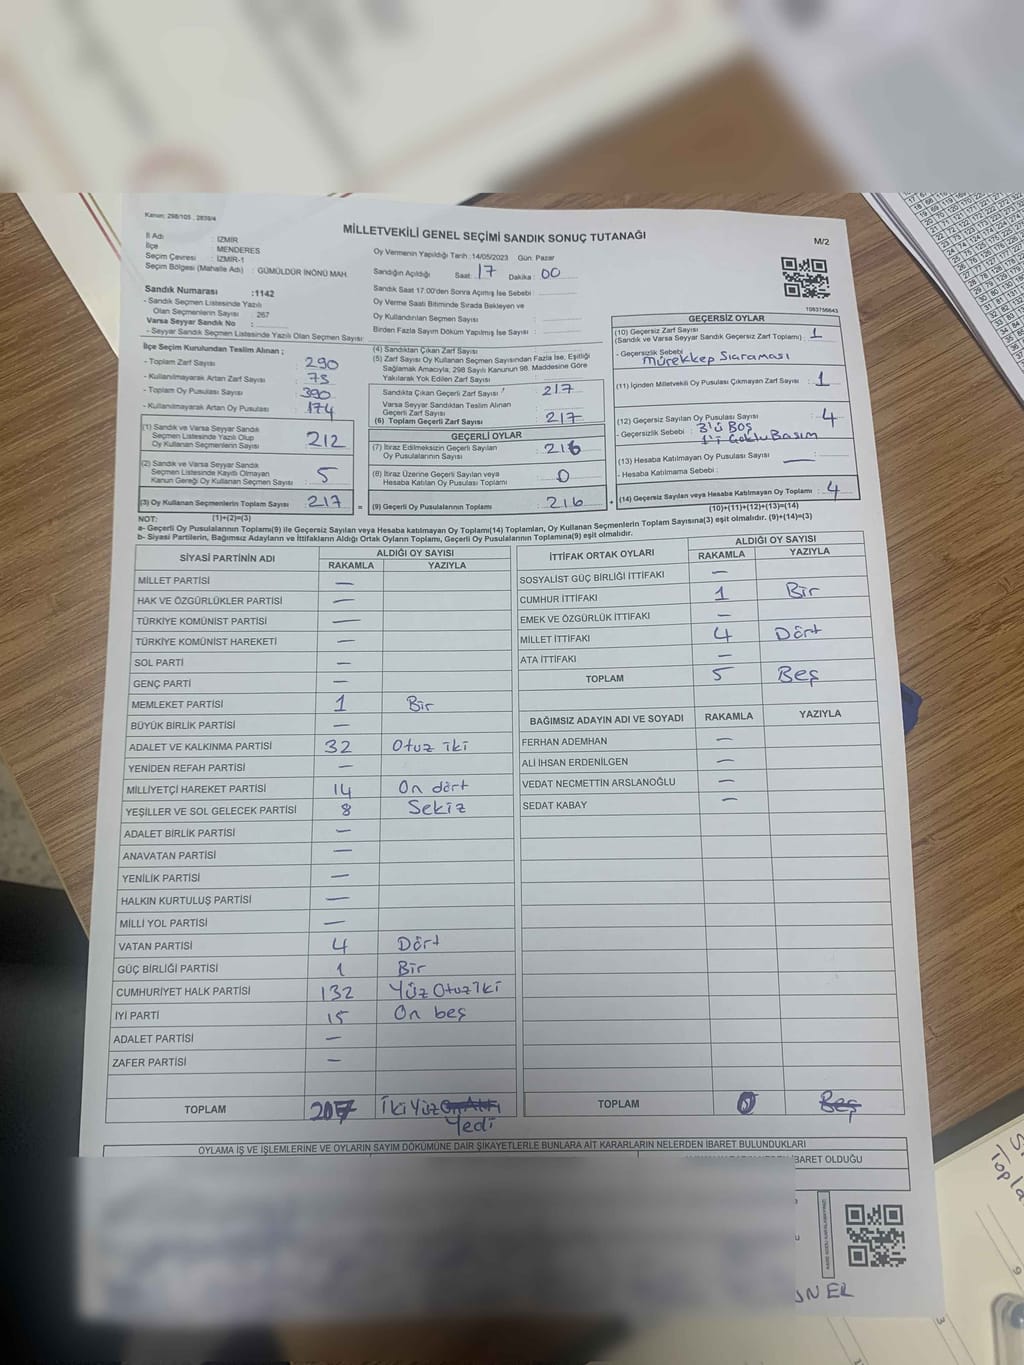 Kanun: 298/105, 2839/4
MİLLETVEKİLİ GENEL SEÇİMİ SANDIK SONUÇ TUTANAĞI
M/2
İl Adı : İZMİR
İlçe : MENDERES
Seçim Çevresi : İZMİR-1
Seçim Bölgesi (Mahalle Adı) : GÜMÜLDÜR İNÖNÜ MAH.
Sandık Numarası :1142
- Sandık Seçmen Listesinde Yazılı
Olan Seçmenlerin Sayısı : 267
Varsa Seyyar Sandık No :
- Seyyar Sandık Seçmen Listesinde Yazılı Olan Seçmen Sayısı:
Oy Vermenin Yapıldığı Tarih :14/05/2023 Gün: Pazar
Sandığın Açıldığı Saat: 17 Dakika: 00
Sandık Saat 17.00'den Sonra Açılmış İse Sebebi :
Oy Verme Saati Bitiminde Sırada Bekleyen ve
Oy Kullandırılan Seçmen Sayısı :
Birden Fazla Sayım Döküm Yapılmış İse Sayısı :
1083756643
İlçe Seçim Kurulundan Teslim Alınan ;
- Toplam Zarf Sayısı : 290
- Kullanılmayarak Artan Zarf Sayısı : 73
- Toplam Oy Pusulası Sayısı : 390
- Kullanılmayarak Artan Oy Pusulası : 174
(1) Sandık ve Varsa Seyyar Sandık
Seçmen Listesinde Yazılı Olup
Oy Kullanan Seçmenlerin Sayısı : 212
(2) Sandık ve Varsa Seyyar Sandık
Seçmen Listesinde Kayıtlı Olmayan
Kanun Gereği Oy Kullanan Seçmen Sayısı : 5
(3) Oy Kullanan Seçmenlerin Toplam Sayısı : 217
(1)+(2)=(3)
(4) Sandıktan Çıkan Zarf Sayısı :
(5) Zarf Sayısı Oy Kullanan Seçmen Sayısından Fazla İse, Eşitliği
Sağlamak Amacıyla, 298 Sayılı Kanunun 98. Maddesine Göre
Yakılarak Yok Edilen Zarf Sayısı :
Sandıkta Çıkan Geçerli Zarf Sayısı : 217
Varsa Seyyar Sandıktan Teslim Alınan
Geçerli Zarf Sayısı :
(6) Toplam Geçerli Zarf Sayısı : 217
GEÇERLİ OYLAR
(7) İtiraz Edilmeksizin Geçerli Sayılan
Oy Pusulalarının Sayısı : 216
(8) İtiraz Üzerine Geçerli Sayılan veya
Hesaba Katılan Oy Pusulası Toplamı : 0
= (9) Geçerli Oy Pusulalarının Toplamı : 216 +
GEÇERSİZ OYLAR
(10) Geçersiz Zarf Sayısı
(Sandık ve Varsa Seyyar Sandık Geçersiz Zarf Toplamı) : 1
- Geçersizlik Sebebi : Mürekkep Sıçraması
(11) İçinden Milletvekili Oy Pusulası Çıkmayan Zarf Sayısı : 1
(12) Geçersiz Sayılan Oy Pusulası Sayısı : 4
- Geçersizlik Sebebi : 3'ü Boş
1'i Çoklu Basım
(13) Hesaba Katılmayan Oy Pusulası Sayısı : —
- Hesaba Katılmama Sebebi :
(14) Geçersiz Sayılan veya Hesaba Katılmayan Oy Toplamı : 4
(10)+(11)+(12)+(13)=(14)
NOT:
a- Geçerli Oy Pusulalarının Toplamı(9) ile Geçersiz Sayılan veya Hesaba katılmayan Oy Toplamı(14) Toplamları, Oy Kullanan Seçmenlerin Toplam Sayısına(3) eşit olmalıdır. (9)+(14)=(3)
b- Siyasi Partilerin, Bağımsız Adayların ve İttifakların Aldığı Ortak Oyların Toplamı, Geçerli Oy Pusulalarının Toplamına(9) eşit olmalıdır.
SİYASİ PARTİNİN ADI ALDIĞI OY SAYISI
RAKAMLA YAZIYLA
MİLLET PARTİSİ —
HAK VE ÖZGÜRLÜKLER PARTİSİ —
TÜRKİYE KOMÜNİST PARTİSİ —
TÜRKİYE KOMÜNİST HAREKETİ —
SOL PARTİ —
GENÇ PARTİ —
MEMLEKET PARTİSİ 1 Bir
BÜYÜK BİRLİK PARTİSİ —
ADALET VE KALKINMA PARTİSİ 32 Otuz iki
YENİDEN REFAH PARTİSİ —
MİLLİYETÇİ HAREKET PARTİSİ 14 On dört
YEŞİLLER VE SOL GELECEK PARTİSİ 8 Sekiz
ADALET BİRLİK PARTİSİ —
ANAVATAN PARTİSİ —
YENİLİK PARTİSİ —
HALKIN KURTULUŞ PARTİSİ —
MİLLİ YOL PARTİSİ —
VATAN PARTİSİ 4 Dört
GÜÇ BİRLİĞİ PARTİSİ 1 Bir
CUMHURİYET HALK PARTİSİ 132 Yüz Otuz iki
İYİ PARTİ 15 On beş
ADALET PARTİSİ —
ZAFER PARTİSİ —
TOPLAM 207 İki Yüz On Altı
Yedi
İTTİFAK ORTAK OYLARI ALDIĞI OY SAYISI
RAKAMLA YAZIYLA
SOSYALİST GÜÇ BİRLİĞİ İTTİFAKI —
CUMHUR İTTİFAKI 1 Bir
EMEK VE ÖZGÜRLÜK İTTİFAKI —
MİLLET İTTİFAKI 4 Dört
ATA İTTİFAKI —
TOPLAM 5 Beş
BAĞIMSIZ ADAYIN ADI VE SOYADI RAKAMLA YAZIYLA
FERHAN ADEMHAN —
ALİ İHSAN ERDENİLGEN —
VEDAT NECMETTİN ARSLANOĞLU —
SEDAT KABAY —
TOPLAM 0 Beş
OYLAMA İŞ VE İŞLEMLERİNE VE OYLARIN SAYIM DÖKÜMÜNE DAİR ŞİKAYETLERLE BUNLARA AİT KARARLARIN NELERDEN İBARET BULUNDUKLARI
İBARET OLDUĞU